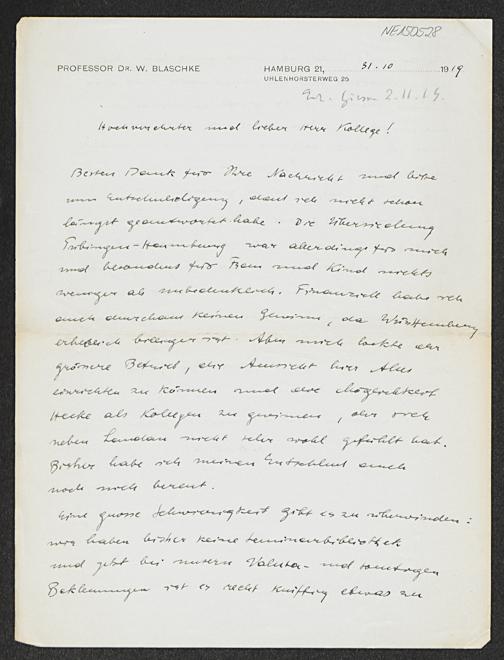 NE150528
PROFESSOR DR. W. BLASCHKE
HAMBURG 21, 31.10 1919
UHLENHORSTERWEG 25
2.11.19.
Hochverehrter und lieber Herr Kollege!
Besten Dank für Ihre Nachricht und bitte
um Entschuldigung, dass ich nicht schon
längst geantwortet habe. Die Übersiedlung
Tübingen-Hamburg war allerdings für mich
und besonders für Frau und Kind nichts
weniger als unbedenklich. Finanziell habe ich
auch durchaus keinen Gewinn, da Württemberg
erheblich billiger ist. Aber mich lockte der
grössere Betrieb, die Aussicht hier Alles
einrichten zu können und die Möglichkeit
Hecke als Kollegen zu gewinnen, der sich
neben Landau nicht sehr wohl gefühlt hat.
Bisher habe ich meinen Entschluss auch
noch nicht bereut.
Eine grosse Schwierigkeit gibt es zu überwinden:
wir haben bisher keine Seminarbibliothek
und jetzt bei unsern Valuta- und sonstigen
Beklemmungen ist es recht kniffig etwas zu